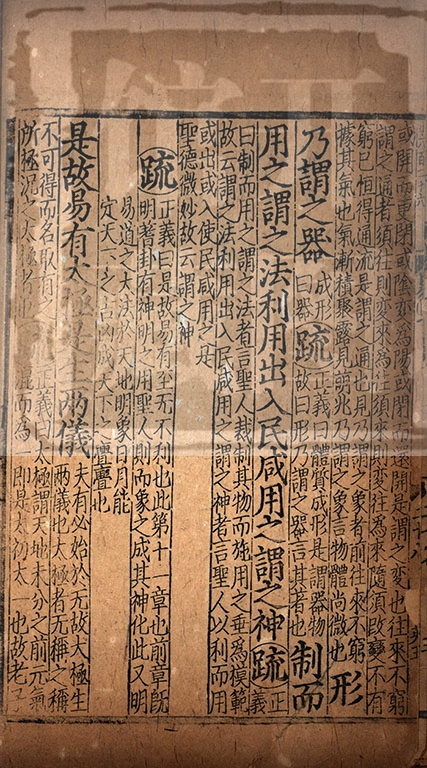 或開而更閉或陰變為陽或閉而還開是謂之變也往來不窮
謂之通者須往則變來為往須來則變往為來隨須改變不有
窮已恒得通流是謂之通也見乃謂之象者前往來不窮
據其氣也氣漸積聚露見萌兆乃謂之象言物體尚微也
形
乃謂之器
成形
曰器
疏
正義曰體質成形是謂器物
故曰形乃謂之器言其著也
制而
用之謂之法利用出入民咸用之謂之神疏
正
義
曰制而用之謂之法者言聖人裁制其物而施用之垂為模範
故云謂之法利用出入民咸用之謂之神者言聖人以利而用
或出或入使民咸用之是
聖德微妙故云謂之神
疏
正義曰是故易有至无不利也此第十一章也前章旣
明蓍卦有神明之用聖人則而象之成其神化此又明
易道之大法於天地明象日月能
定天下之吉凶成天下之亹亹也
是故易有太極是生兩儀
夫有必始於无故大極生
兩儀也太極者无稱之稱
不可得而名取有之
所極況之太極者也
疏
正義曰太極謂天地未分之前元氣
混而為一即是太初太一也故老子